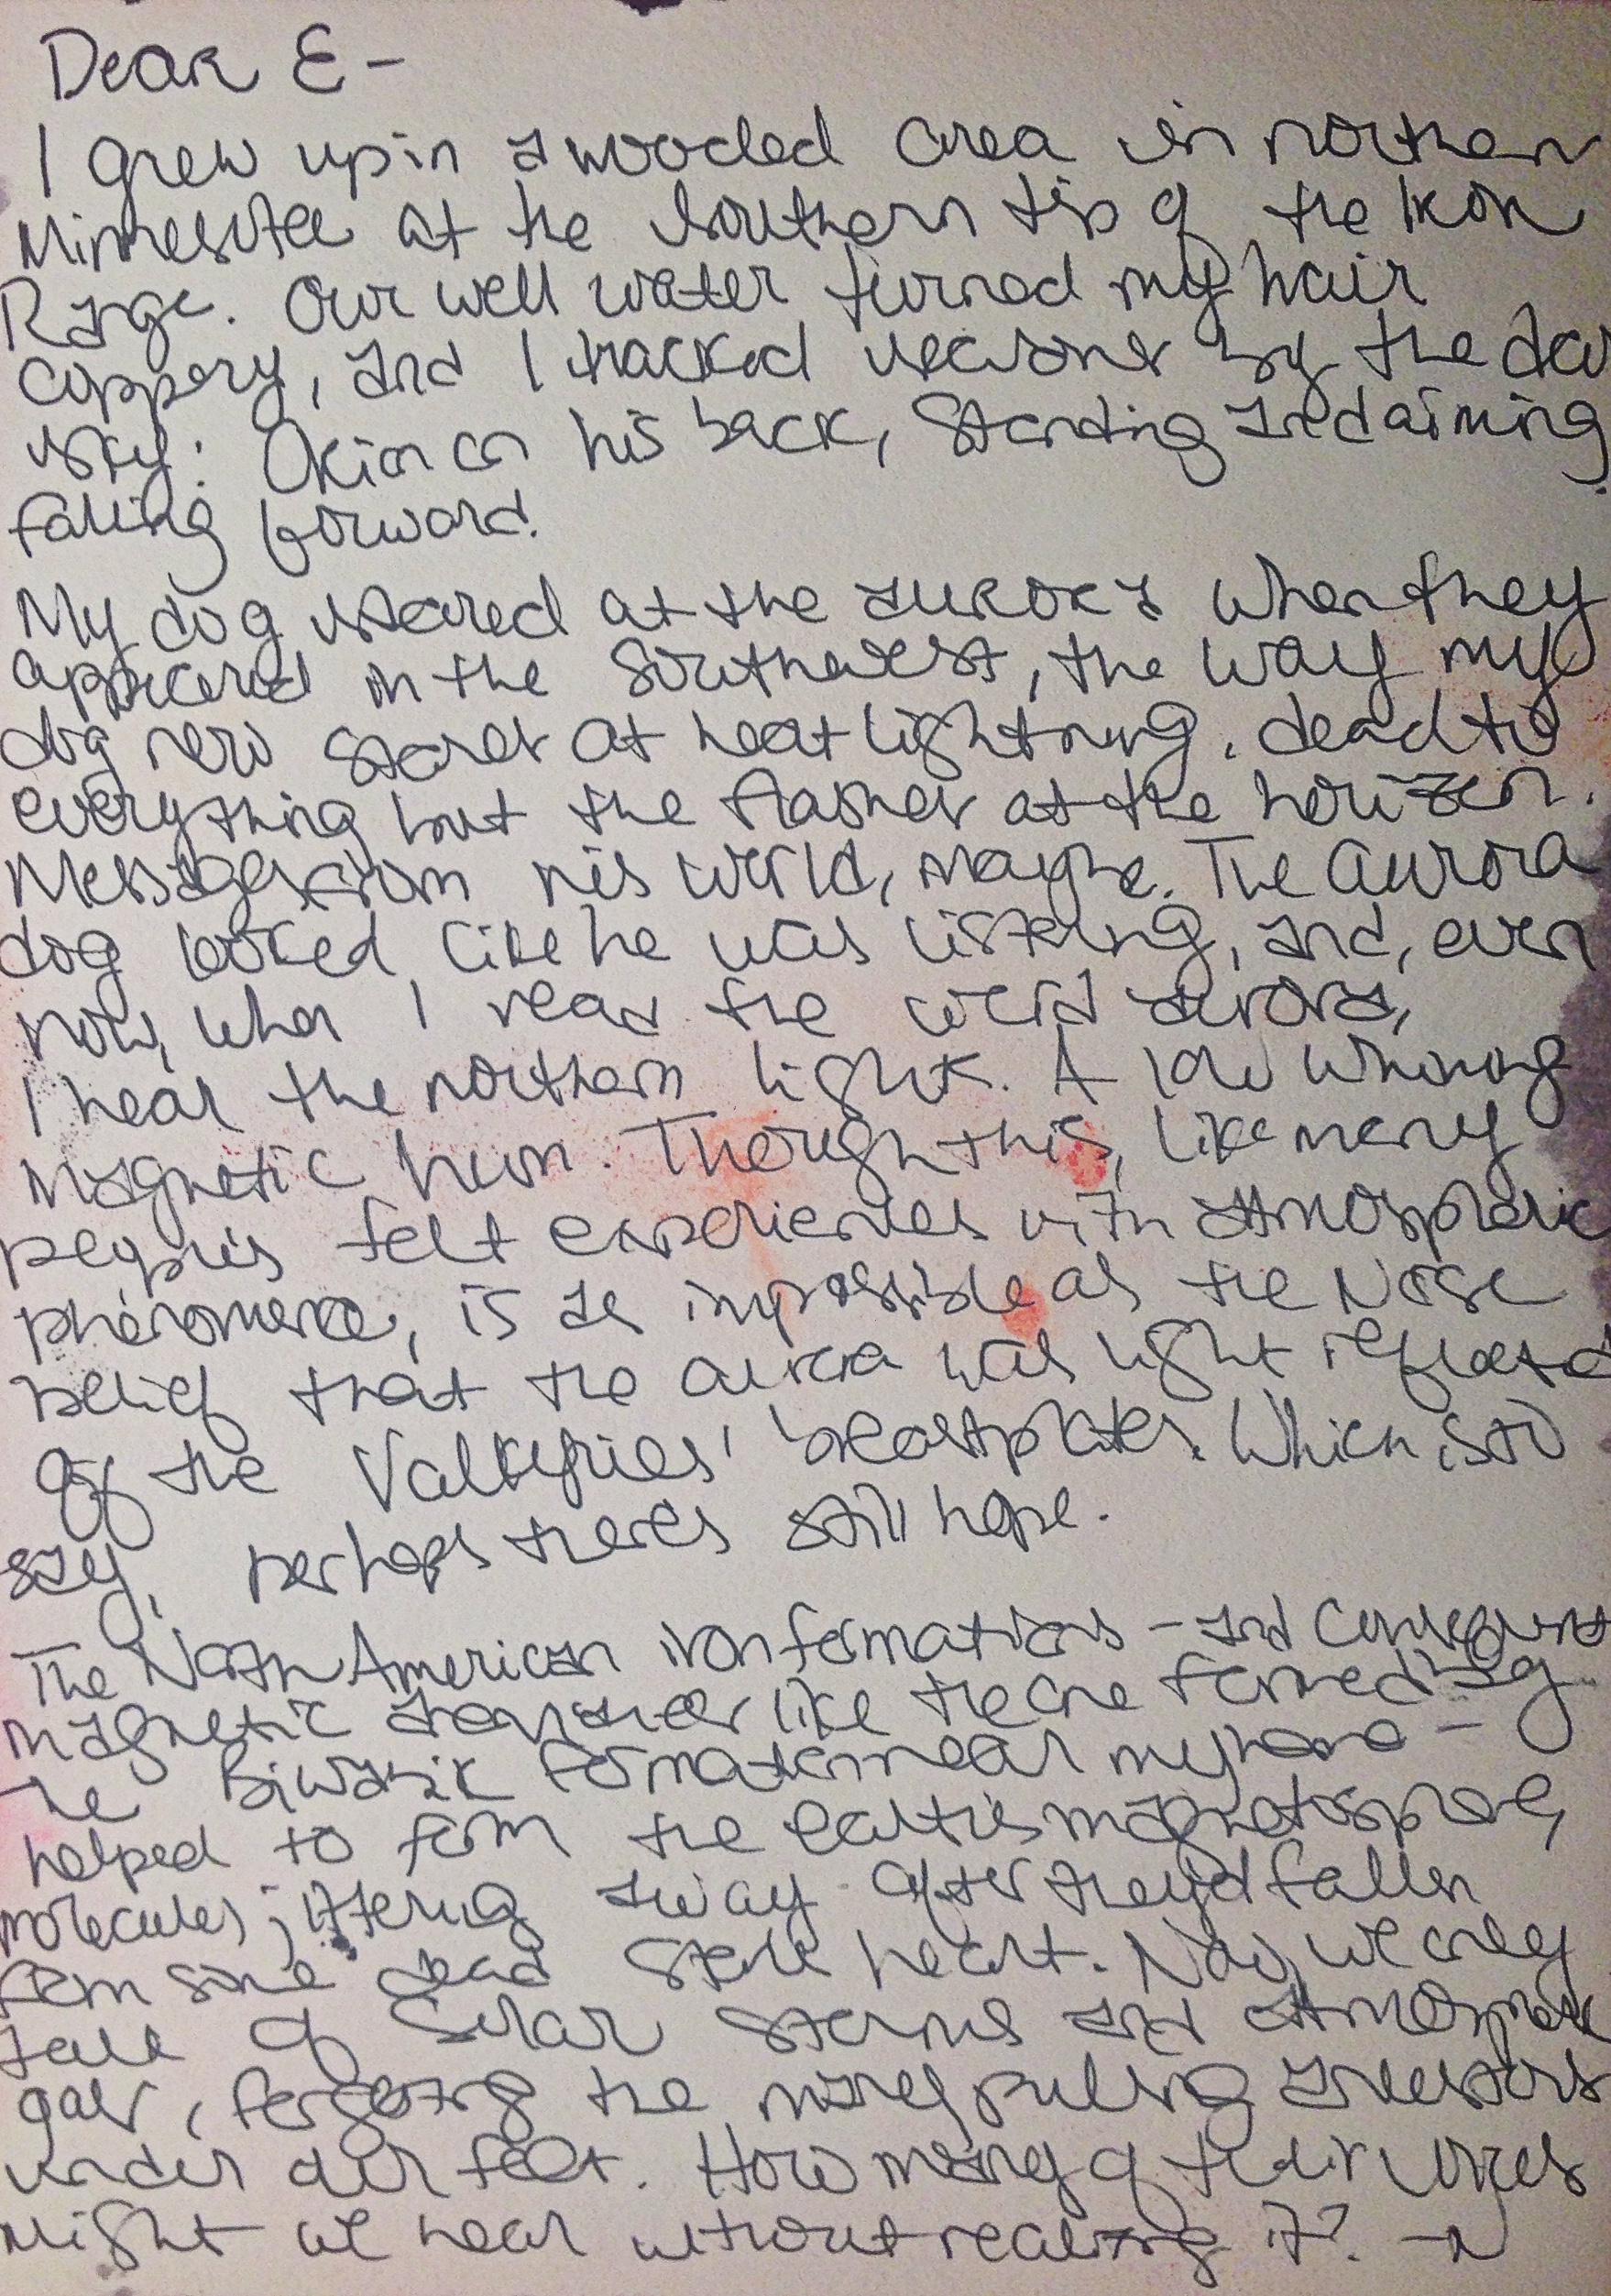 Dear E-
I grew up in a wooded area in northern
Minnesota at the southern tip of the Iron
Range. Our well water turned my hair
coppery, and I tracked seasons by the
sky: Orion on his back, standing and aiming,
falling forward.
My dog stared at the aurora when they
appeared in the southwest, the way my
dog now stares at heat lightning. dead to
everything but the flashes at the horizon.
Messages from his world, maybe. The aurora
dog looked like he was listening, and, even
now, when I read the word aurora,
I hear the northern lights. A low whining
magnetic hum. Though this, like many
people's felt experiences with atmospheric
phenomena, is as impossible as the Norse
belief that the aurora was light reflected
off the Valkyries' breastplates. Which is to
say, perhaps there's still hope.
The North American iron formations - and consequent
magnetic anomalies like the one formed by
the Biwabik formation near my home -
helped to form the earth's magnetosphere,
molecules jittering away after they'd fallen
from some dead star's heart. Now, we only
talk of solar storms and atmospheric
gases, forgetting the many pulsing ancestors
under our feet. How many of their voices
might we hear without realizing it? -N